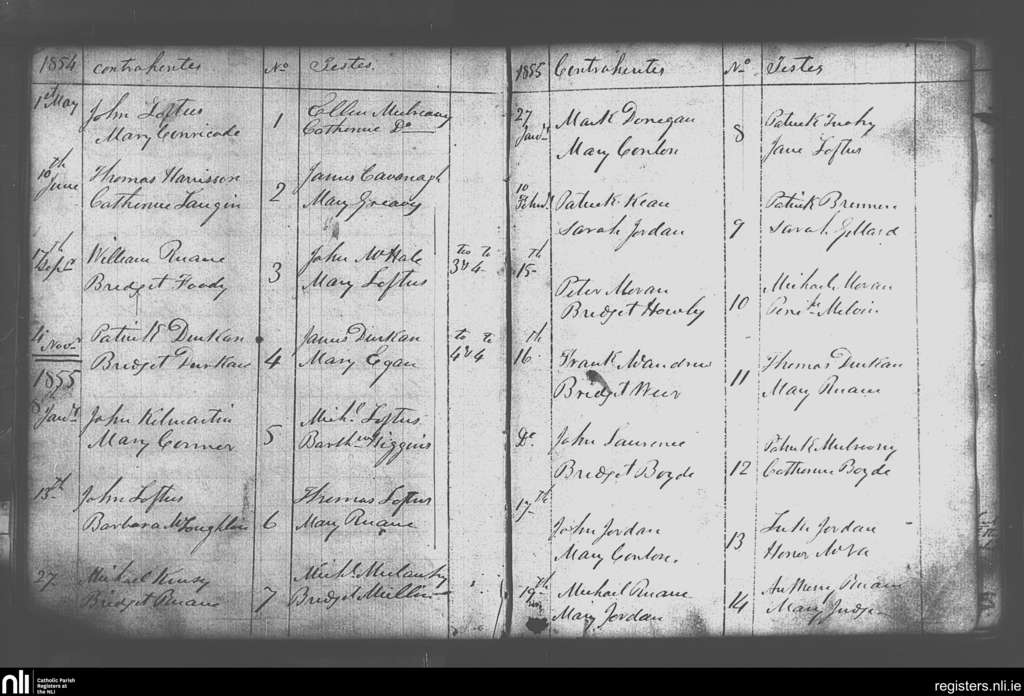 1854 Contrahentes No Testes.
1st May
John Loftus
Mary
1
Ellen Mulreany
Catherine Do
10th June
Thomas Harrison
Catherine Langin
2
James Cavanagh
Mary Greavy
17th Sepr
William Ruane
Bridget Foody
3
John McHale
Mary Loftus
to
3d 4
4 Novr
Patrick Durkan
Bridget Durkan
4
James Durkan
Mary Egan
to to
4 4
1855
8th Jany
John Kilmartin
Mary Connor
5
Michl Loftus
Barthw Higgins
13th
John Loftus
Barbara McLoughlin
6
Thomas Loftus
Mary Ruane
27
Michael
Bridget Ruane
7
Michl
Bridget Mullin
1855 Contrahentes No Testes
27 Jany
Mark Donegan
Mary Conlon
8
Patrick Tuohy
Jane Loftus
10 Feby
Patrick Kean
Sarah Jordan
9
Patrick Brennen
Sarah Gillard
15th
Peter Moran
Bridget Howley
10
Michael Moran
16th
Frank McAndrew
Bridget Weir
11
Thomas Durkan
Mary Ruane
Do
John Laurence
Bridget Boyde
12
Patrick Mulroony
Catherine Boyde
17th
John Jordan
Mary Conlon
13
Luke Jordan
Honor
19th
Michael Ruane
Mary Jordan
14
Anthony Ruane
Mary Judge
nli
Catholic Parish
Registers at
the NLI
registers.nli.ie